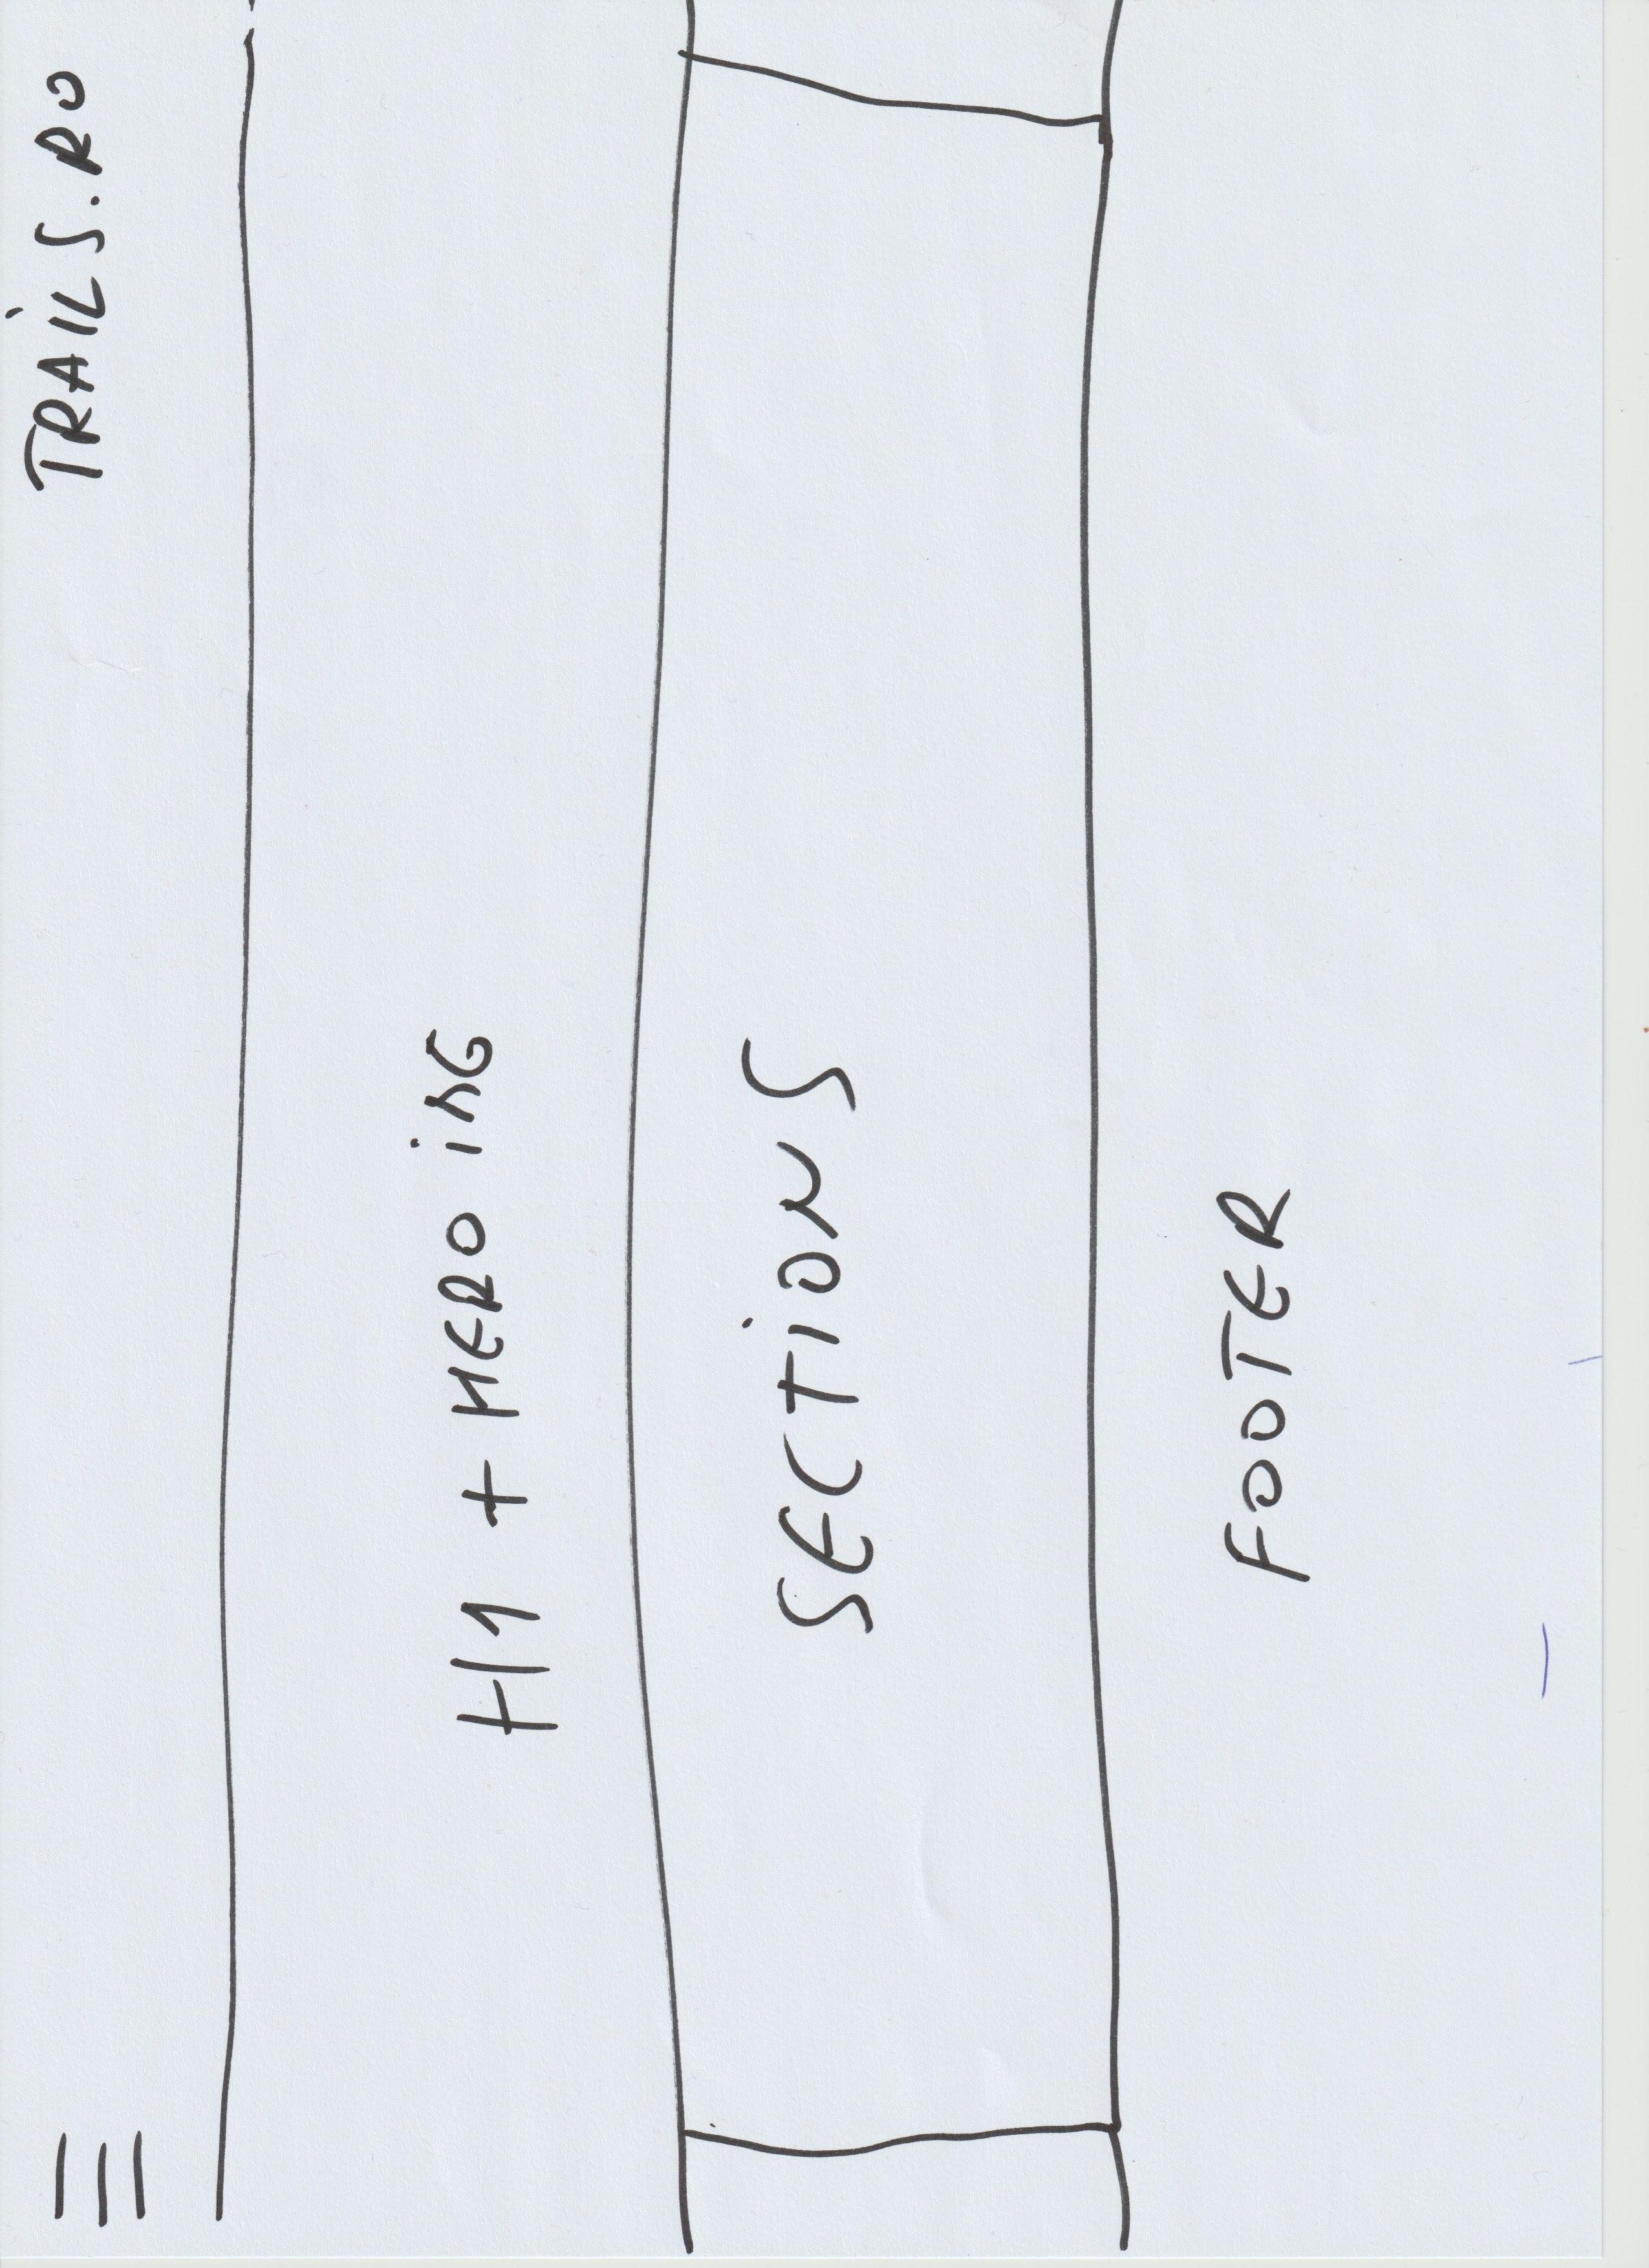 TRAILS.RO
H1 + HERO iMG
SECTiONS
FOOTER